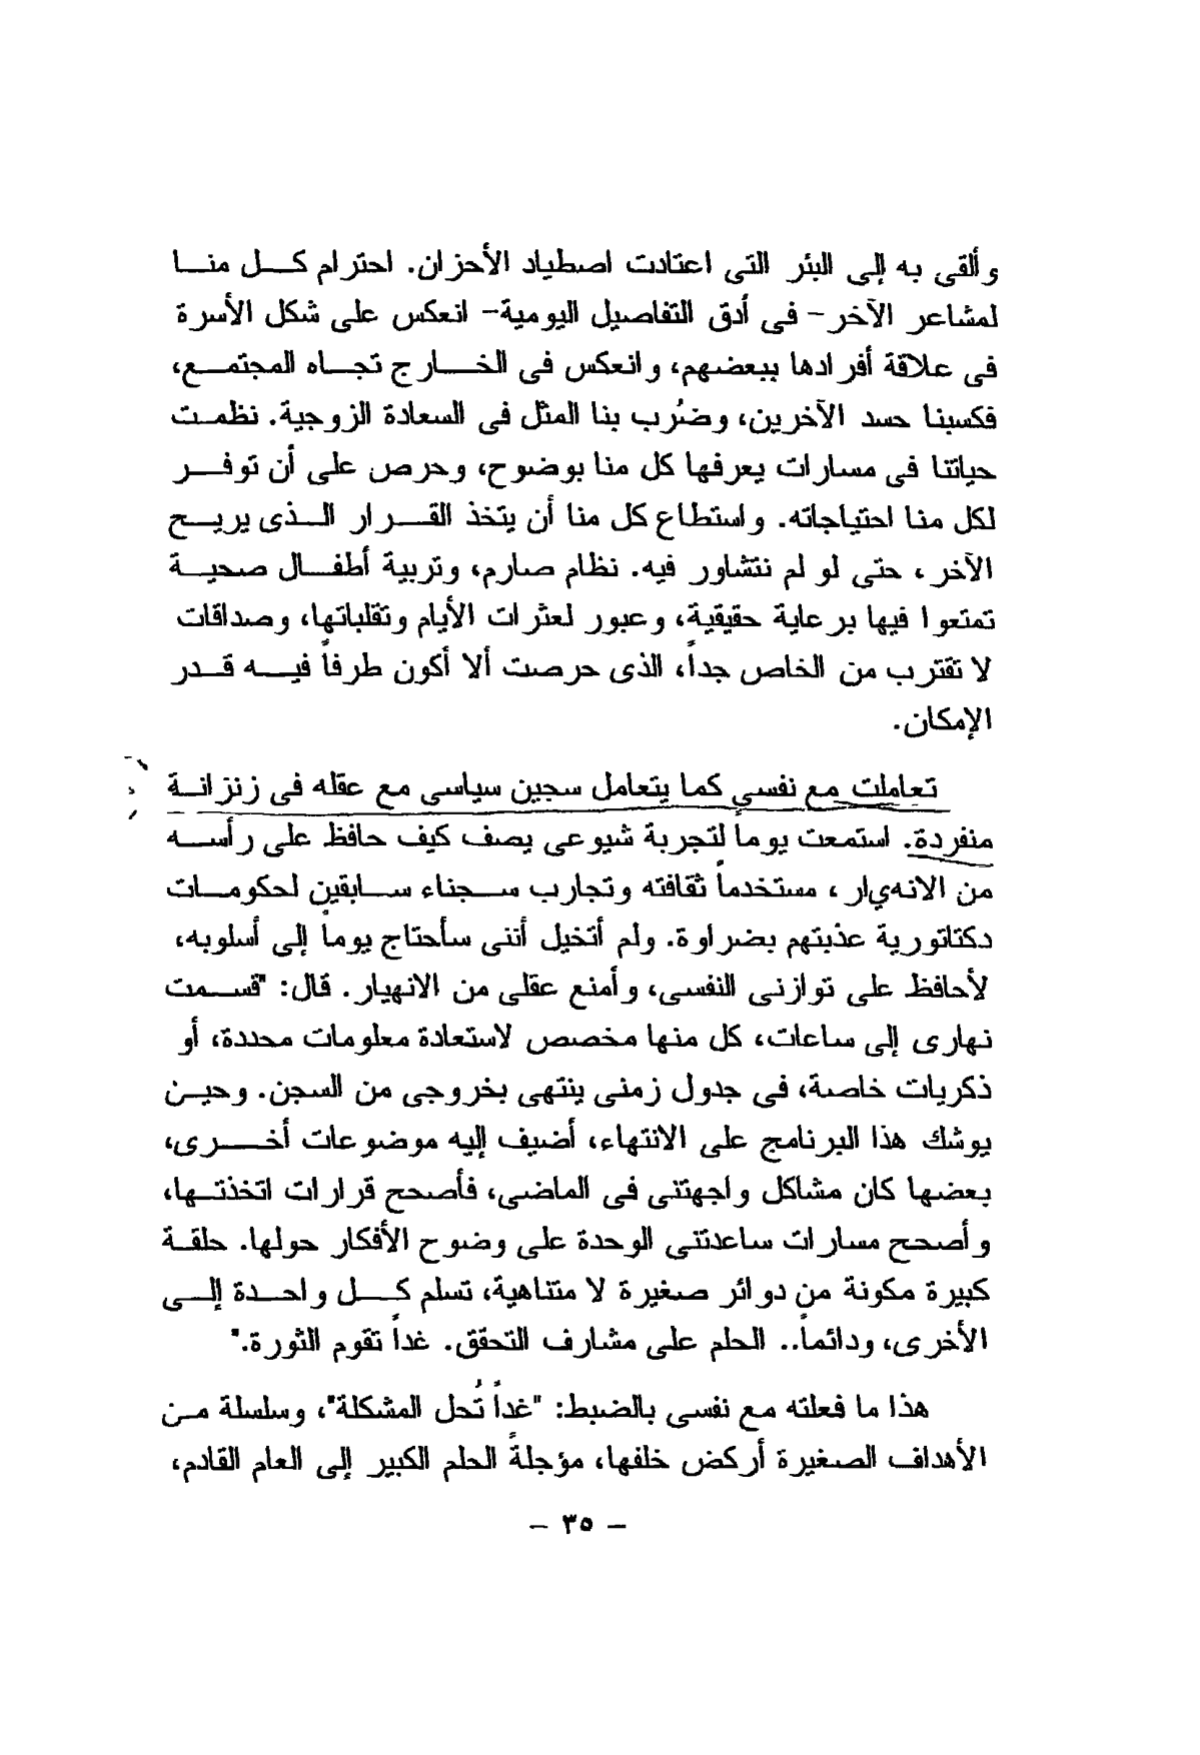 وألقى به إلى البئر التى اعتادت اصطياد الأحزان. احترام كل منا
لمشاعر الآخر- فى أدق التفاصيل اليومية- انعكس على شكل الأسرة
فى علاقة أفرادها ببعضهم، وانعكس فى الخارج تجاه المجتمع،
فكسبنا حسد الآخرين، وضُرب بنا المثل فى السعادة الزوجية. نظمت
حياتنا فى مسارات يعرفها كل منا بوضوح، وحرص على أن توفر
لكل منا احتياجاته. واستطاع كل منا أن يتخذ القرار الذى يريح
الآخر، حتى لو لم نتشاور فيه. نظام صارم، وتربية أطفال صحية
تمتعوا فيها برعاية حقيقية، وعبور لعثرات الأيام وتقلباتها، وصداقات
لا تقترب من الخاص جداً، الذى حرصت ألا أكون طرفاً فيه قدر
الإمكان.
تعاملت مع نفسى كما يتعامل سجين سياسى مع عقله فى زنزانة
منفردة. استمعت يوماً لتجربة شيوعى يصف كيف حافظ على رأسه
من الانهيار، مستخدماً ثقافته وتجارب سجناء سابقين لحكومات
دكتاتورية عذبتهم بضراوة. ولم أتخيل أننى سأحتاج يوماً إلى أسلوبه،
لأحافظ على توازنى النفسى، وأمنع عقلى من الانهيار. قال: "قسمت
نهارى إلى ساعات، كل منها مخصص لاستعادة معلومات محددة، أو
ذكريات خاصة، فى جدول زمنى ينتهى بخروجى من السجن. وحين
يوشك هذا البرنامج على الانتهاء، أضيف إليه موضوعات أخرى،
بعضها كان مشاكل واجهتنى فى الماضى، فأصحح قرارات اتخذتها،
وأصحح مسارات ساعدتنى الوحدة على وضوح الأفكار حولها. حلقة
كبيرة مكونة من دوائر صغيرة لا متناهية، تسلم كل واحدة إلى
الأخرى، ودائماً.. الحلم على مشارف التحقق. غداً تقوم الثورة."
هذا ما فعلته مع نفسى بالضبط: "غداً تُحل المشكلة"، وسلسلة من
الأهداف الصغيرة أركض خلفها، مؤجلةً الحلم الكبير إلى العام القادم،
- ٣٥ -